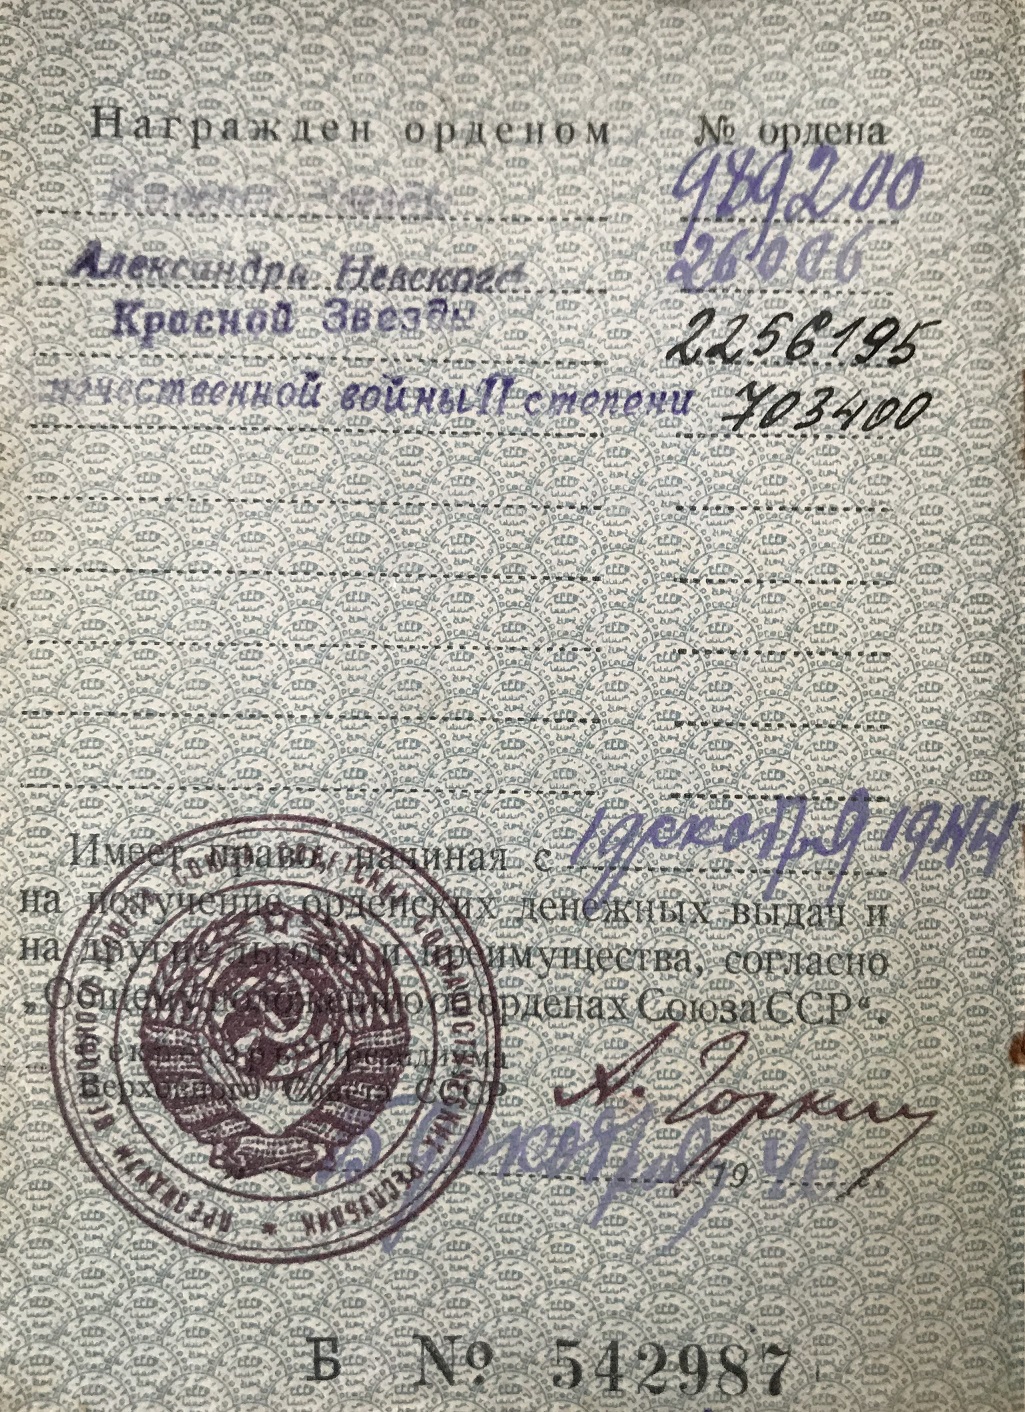 Награжден орденом № ордена
Красной Звезды 989200
Александра Невского 26006
Красной Звезды 2256195
Отечественной войны II степени 703400
Имеет право, начиная с 1 декабря 1944
на получение орденских денежных выдач и
на другие льготы и преимущества, согласно
„Общему положению об орденах Союза ССР“.
Секретарь Президиума
Верховного Совета СССР А. Горкин
декабря 19
ПРЕЗИДИУМ ВЕРХОВНОГО СОВЕТА СОЮЗА СОВЕТСКИХ СОЦИАЛИСТИЧЕСКИХ РЕСПУБЛИК
Б № 542987